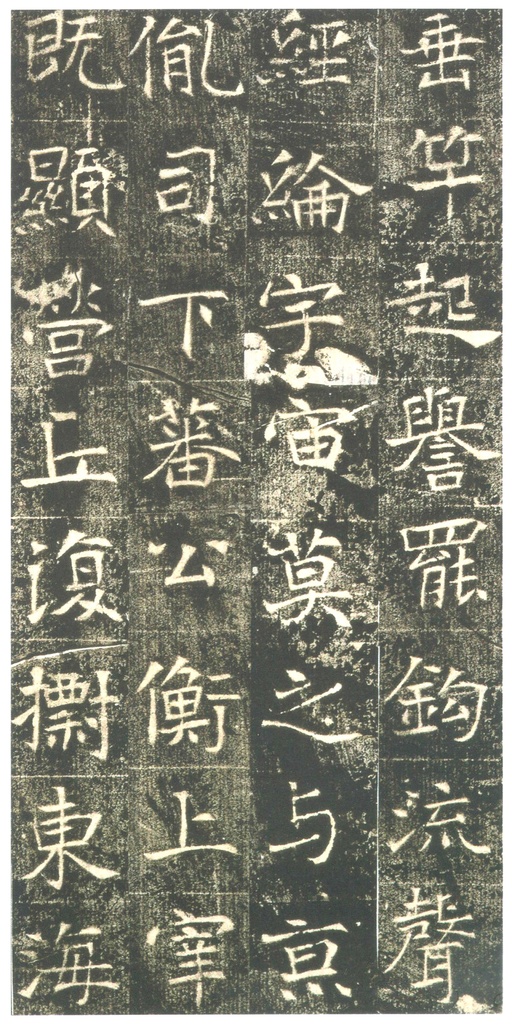 垂竿起譽罷鈎流聲
經綸宇宙莫之与京
胤司下蕃公衡上宰
既顯營丘復㯕東海